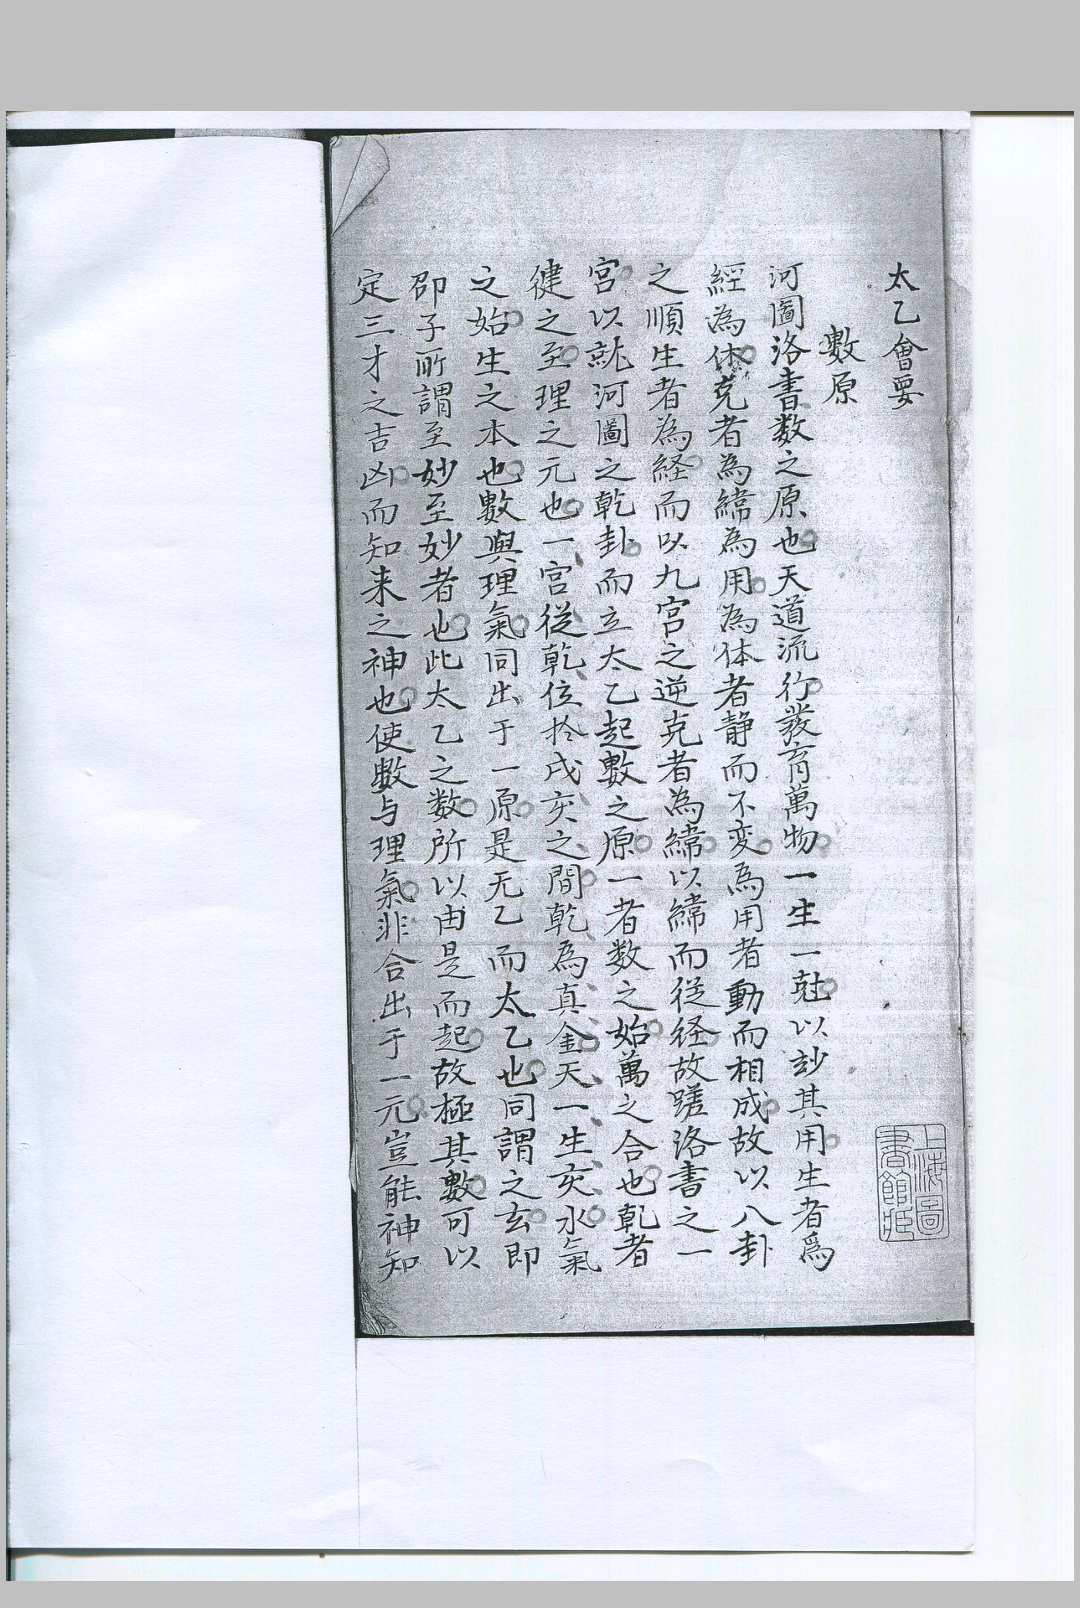 太乙會要
數原
河圖洛書数之原也天道流行發育萬物一生一尅以玅其用生者爲
經為体克者為緯為用為体者静而不変為用者動而相成故以八卦
之順生者為経而以九宮之逆克者為緯以緯而従径故蹉洛書之一
宮以就河圖之乾卦而立太乙起數之原一者数之始萬之合也乹者
健之至理之元也一宮從乾位扵戌亥之間乾為真金天一生亥水氣
之始生之本也數與理氣同出于一原是无乙而太乙也同謂之玄即
邵子所謂至妙至妙者也此太乙之数所以由是而起故極其數可以
定三才之吉凶而知来之神也使數与理氣非合出于一元豈能神知
上海圖
書館藏